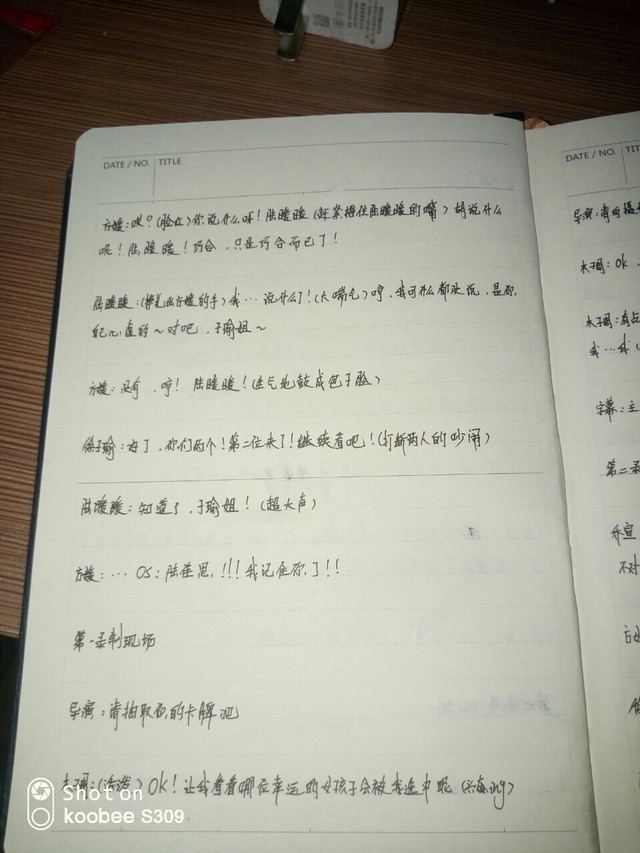 DATE / NO.
TITLE
方媛：哎？(脸红)你说什么呀！陆暖暖(赶紧捂住陆暖暖的嘴)胡说什么
呢！陆暖暖！巧合，只是巧合而已了！
陆暖暖：(掰开方媛的手)我…说什么了！(大喘气)哼，我可什么都没说，是你，
自己心虚的～对吧，子瑜姐～
方媛：没有，哼！陆暖暖！(生气地鼓成包子脸)
徐子瑜：好了，你们两个！第二位来了！继续看吧！(打断两人的吵闹)
陆暖暖：知道了，子瑜姐！(超大声)
方媛：… OS：陆佳思，!!!我记住你了!!
第一录制现场
导演：请抽取你的卡牌吧
木子洋：(活泼) OK！让我看看哪位幸运的女孩子会被我选中呢 (兴奋ing)
DATE / NO.
TIT
导演：请
OK
字幕：主
第二录
不对
Shot on
koobee S309